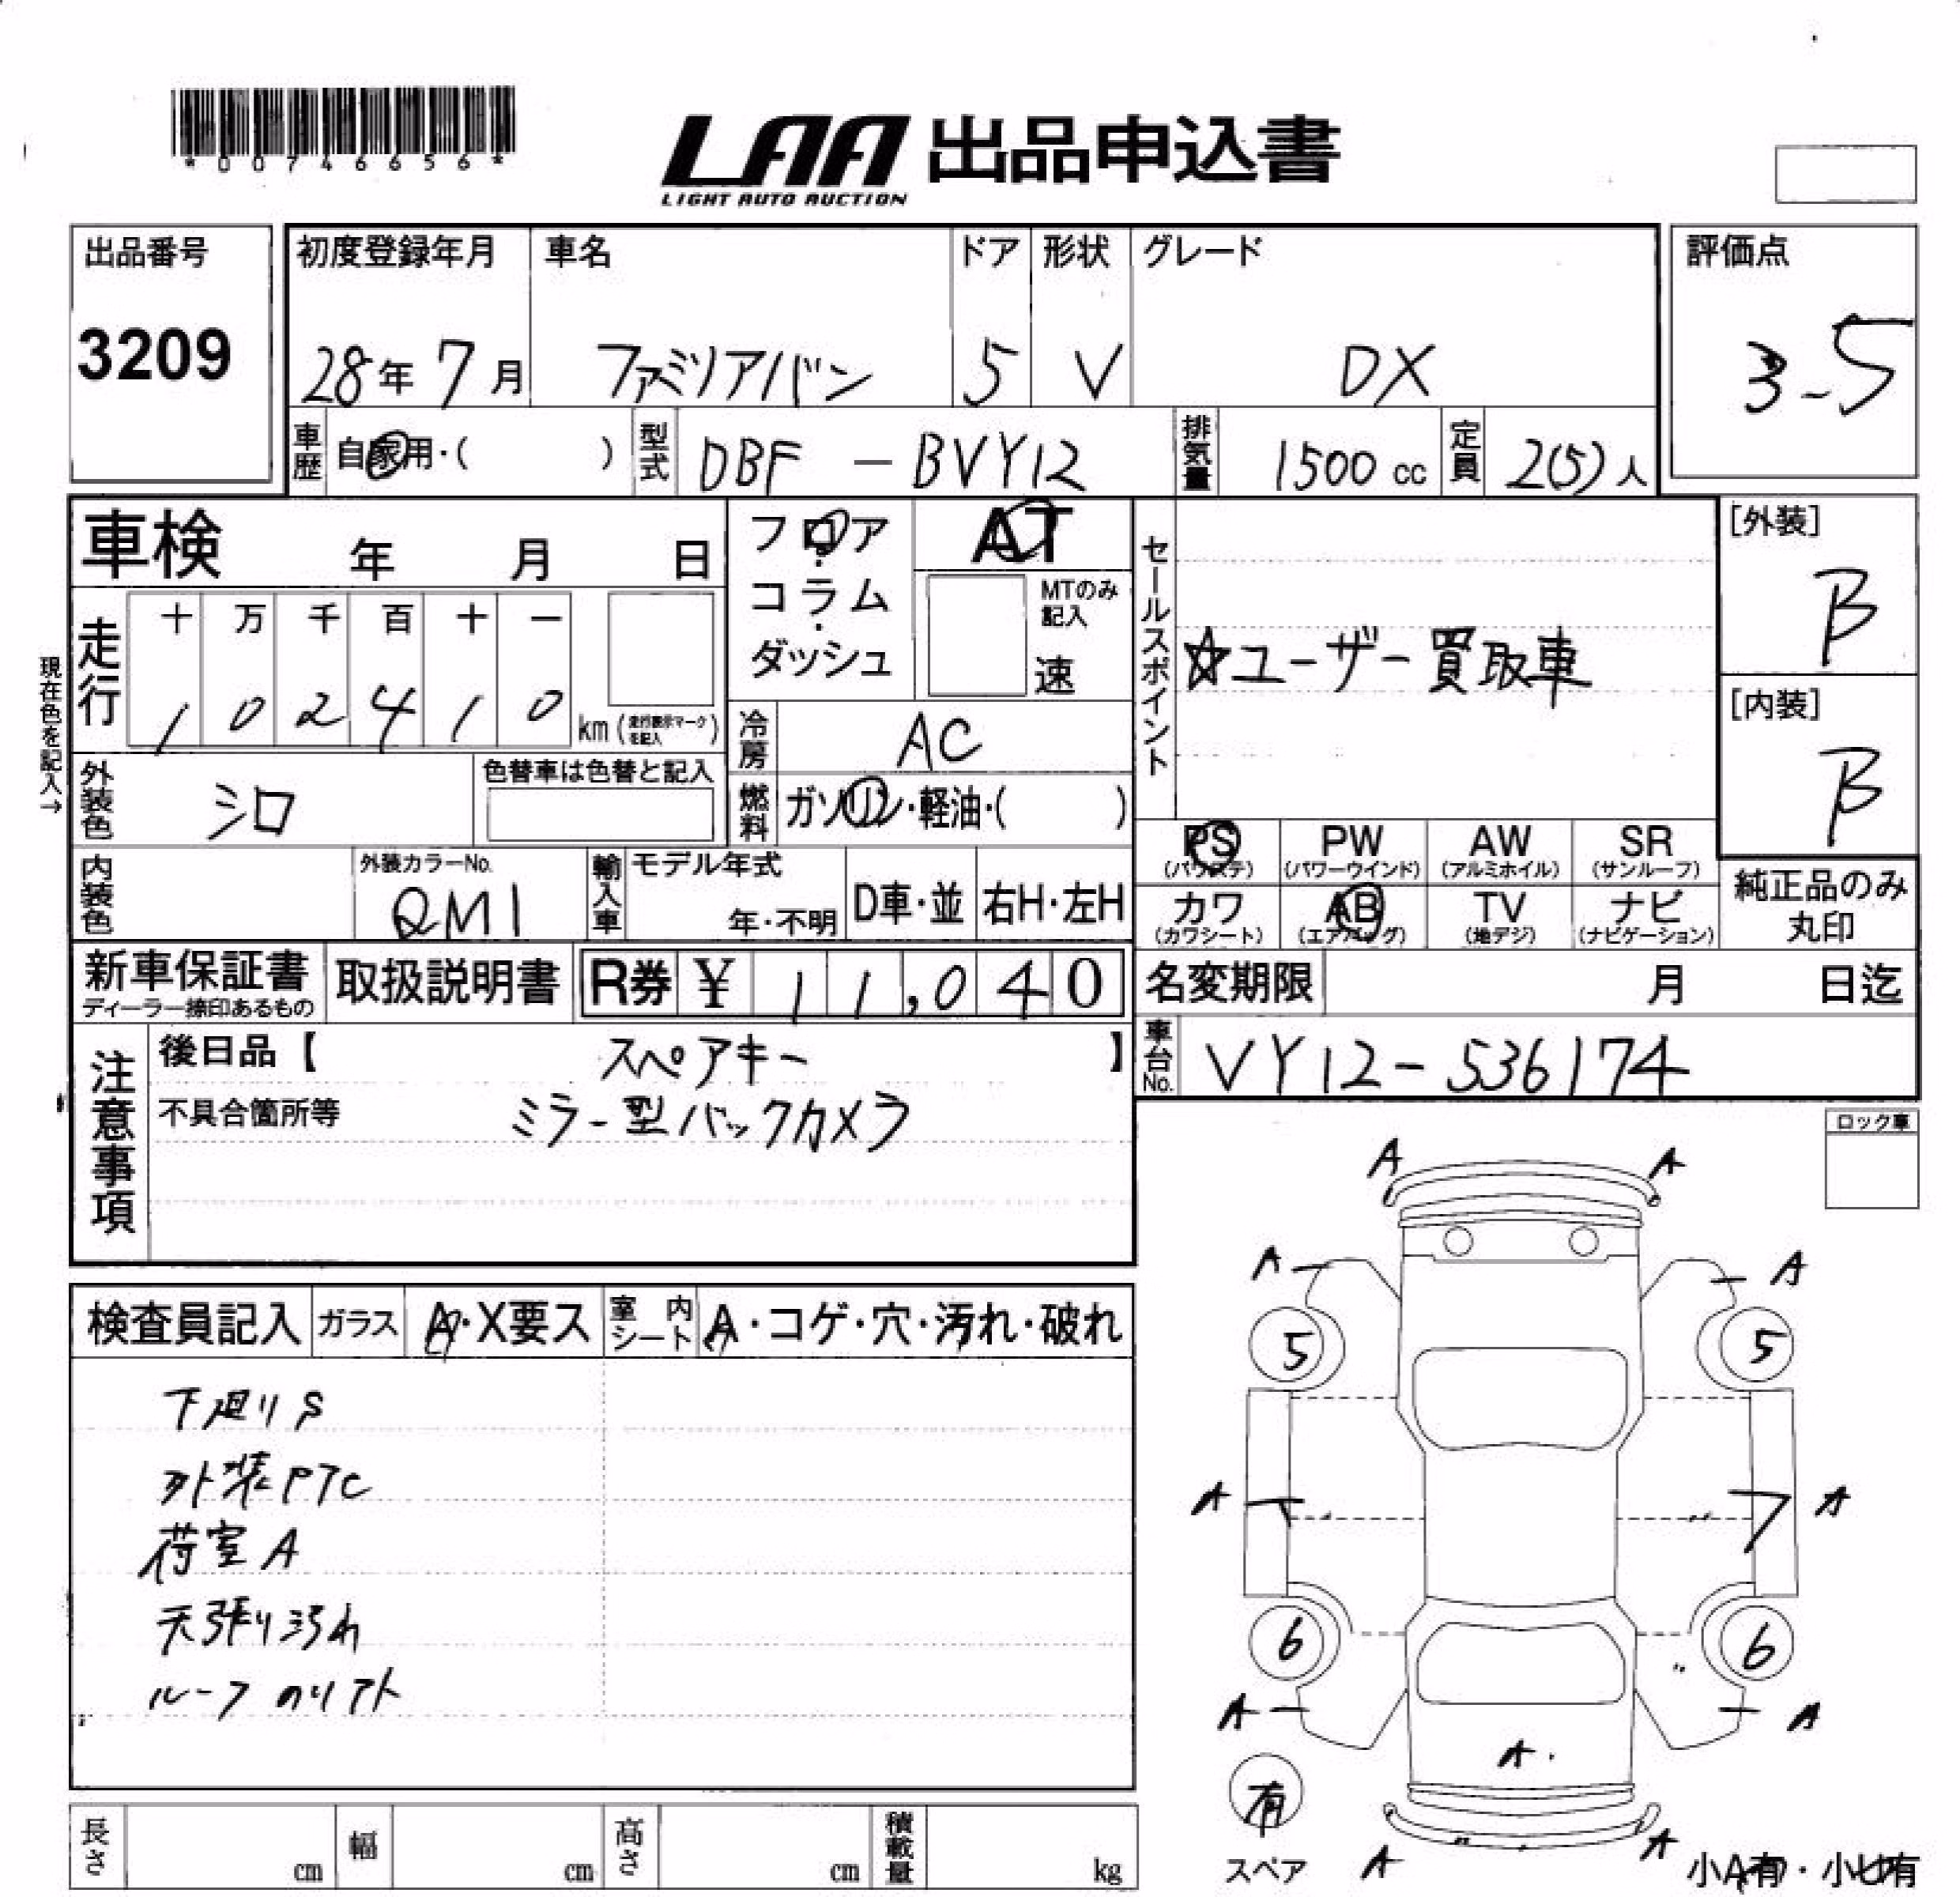 *00746656*
LAA 出品申込書
LIGHT AUTO AUCTION
出品番号
3209
初度登録年月
28年 7月
車名
ファミリアバン
ドア
5
形状
V
グレード
DX
評価点
3-5
車歴 自家用・( )
型式 DBF - BVY12
排気量 1500 cc
定員 2(5)人
車検 年 月 日
フロア・
コラム・
ダッシュ
AT
MTのみ記入
速
セールスポイント
☆ユーザー買取車
[外装]
B
[内装]
B
現在色を記入→
走行
十 万 千 百 十 一
1 0 2 4 1 0
km (走行表示マークを記入)
冷房 AC
燃料 ガソリン・軽油・( )
外装色 シロ
色替車は色替と記入
内装色
外装カラーNo.
QM1
輸入車
モデル年式
年・不明
D車・並
右H・左H
PS
(パワステ)
PW
(パワーウインド)
AW
(アルミホイル)
SR
(サンルーフ)
カワ
(カワシート)
AB
(エアバッグ)
TV
(地デジ)
ナビ
(ナビゲーション)
純正品のみ
丸印
新車保証書
ディーラー捺印あるもの
取扱説明書
R券 ¥ 11,040
名変期限 月 日迄
車台No. VY12-536174
注意事項
後日品【 スペアキー 】
不具合箇所等 ミラー型バックカメラ
ロック車
検査員記入
ガラス A・X要ス
室内シート A・コゲ・穴・汚れ・破れ
下廻りS
外装PTC
荷室A
天張り汚れ
A A
A A
5 5
A A
6 6
A A
A
有
スペア
A A
小A有・小U有
長さ cm
幅 cm
高さ cm
積載量 kg